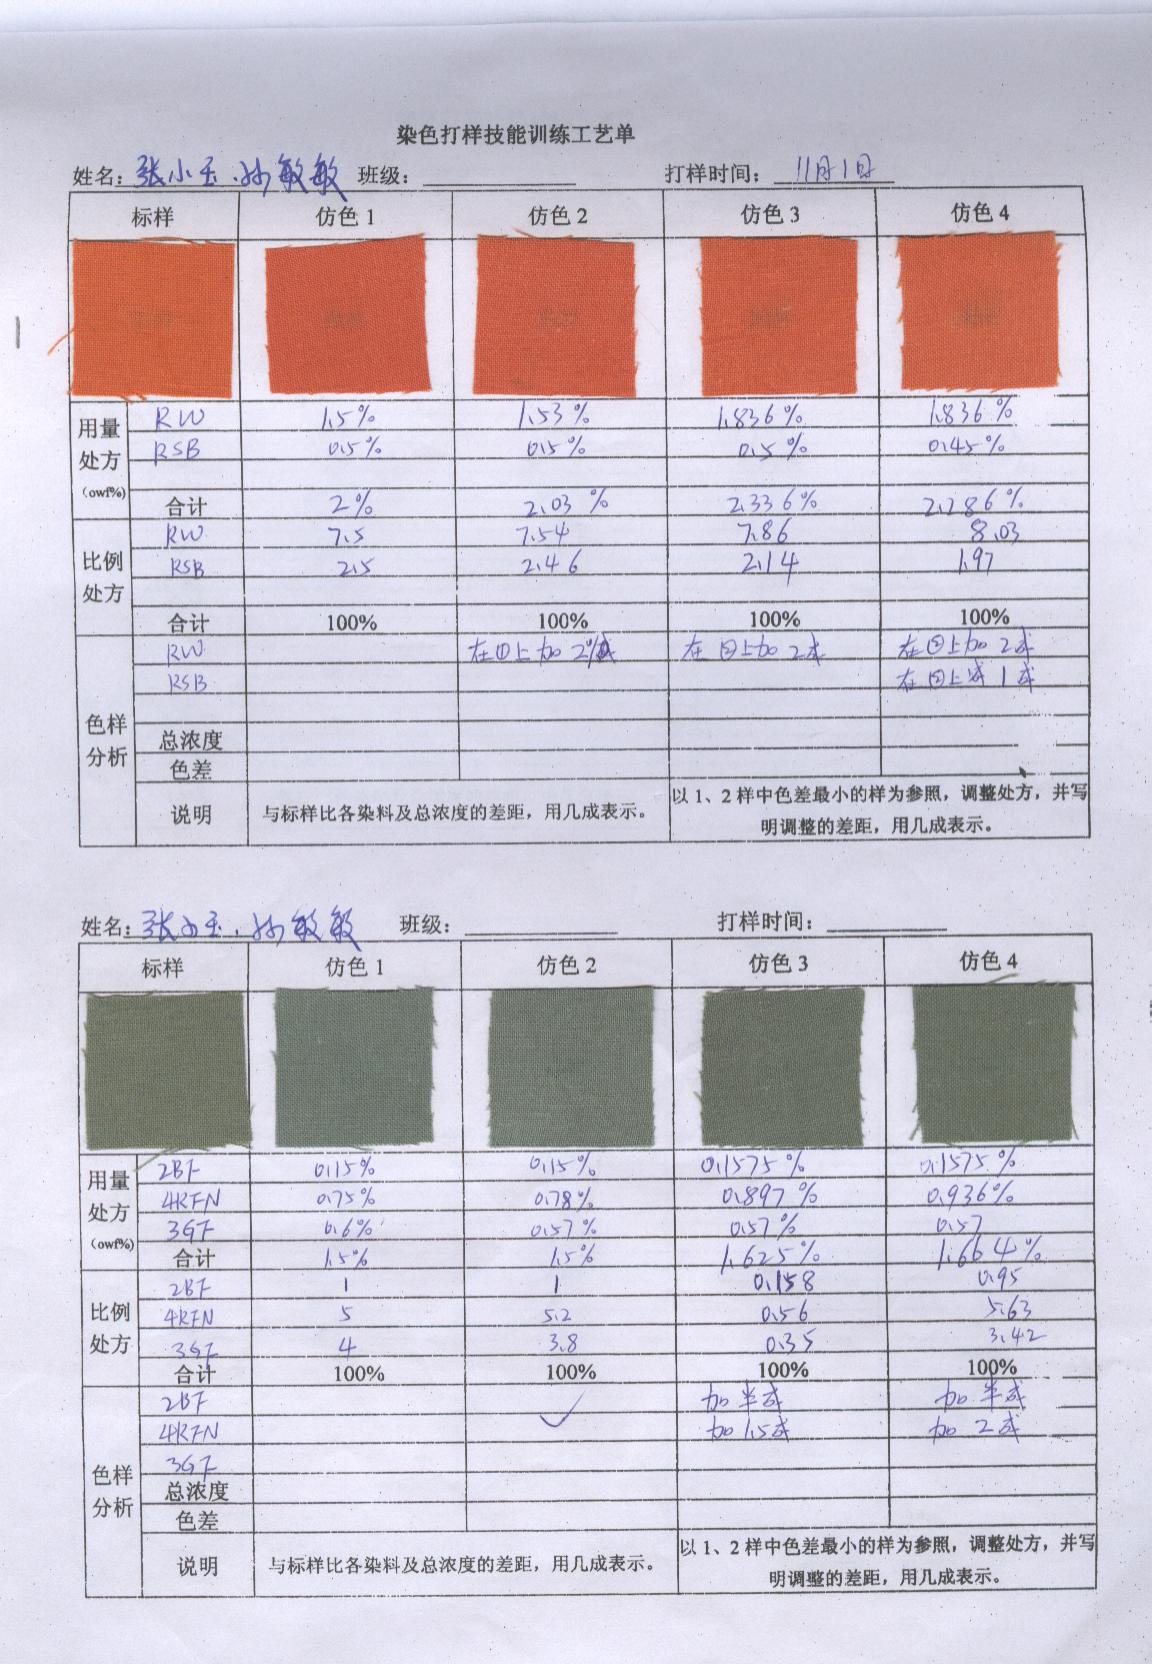 染色打样技能训练工艺单
姓名：张小玉、孙敏敏 班级： 打样时间：11月1日
标样 仿色1 仿色2 仿色3 仿色4
用量处方（owf%）
RW 1.5% 1.53% 1.836% 1.836%
RSB 0.5% 0.5% 0.5% 0.45%
合计 2% 2.03% 2.336% 2.286%
比例处方
RW 7.5 7.54 7.86 8.03
RSB 2.5 2.46 2.14 1.97
合计 100% 100% 100% 100%
色样分析
RW 在①上加2% 在②上加2成 在②上加2成
RSB 在②上减1成
总浓度
色差
说明 与标样比各染料及总浓度的差距，用几成表示。 以1、2样中色差最小的样为参照，调整处方，并写明调整的差距，用几成表示。
姓名：张小玉、孙敏敏 班级： 打样时间：
标样 仿色1 仿色2 仿色3 仿色4
用量处方（owf%）
2BF 0.15% 0.15% 0.1575% 0.1575%
4RFN 0.75% 0.78% 0.897% 0.936%
3GF 0.6% 0.57% 0.57% 0.57
合计 1.5% 1.5% 1.625% 1.664%
比例处方
2BF 1 1 0.158 0.95
4RFN 5 5.2 0.56 5.63
3GF 4 3.8 0.35 3.42
合计 100% 100% 100% 100%
色样分析
2BF 加半成 加半成
4RFN ✓ 加1.5成 加2成
3GF
总浓度
色差
说明 与标样比各染料及总浓度的差距，用几成表示。 以1、2样中色差最小的样为参照，调整处方，并写明调整的差距，用几成表示。